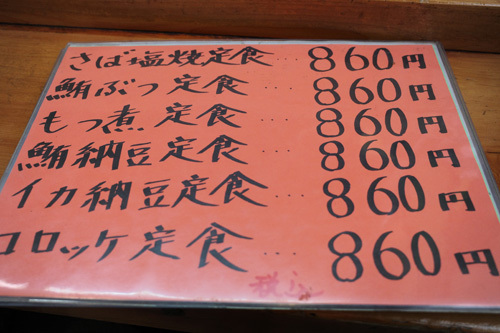 さば塩焼定食 … 860円
鮪ぶつ定食 … 860円
もつ煮定食 … 860円
鮪納豆定食 … 860円
イカ納豆定食 … 860円
コロッケ定食 … 860円
税込